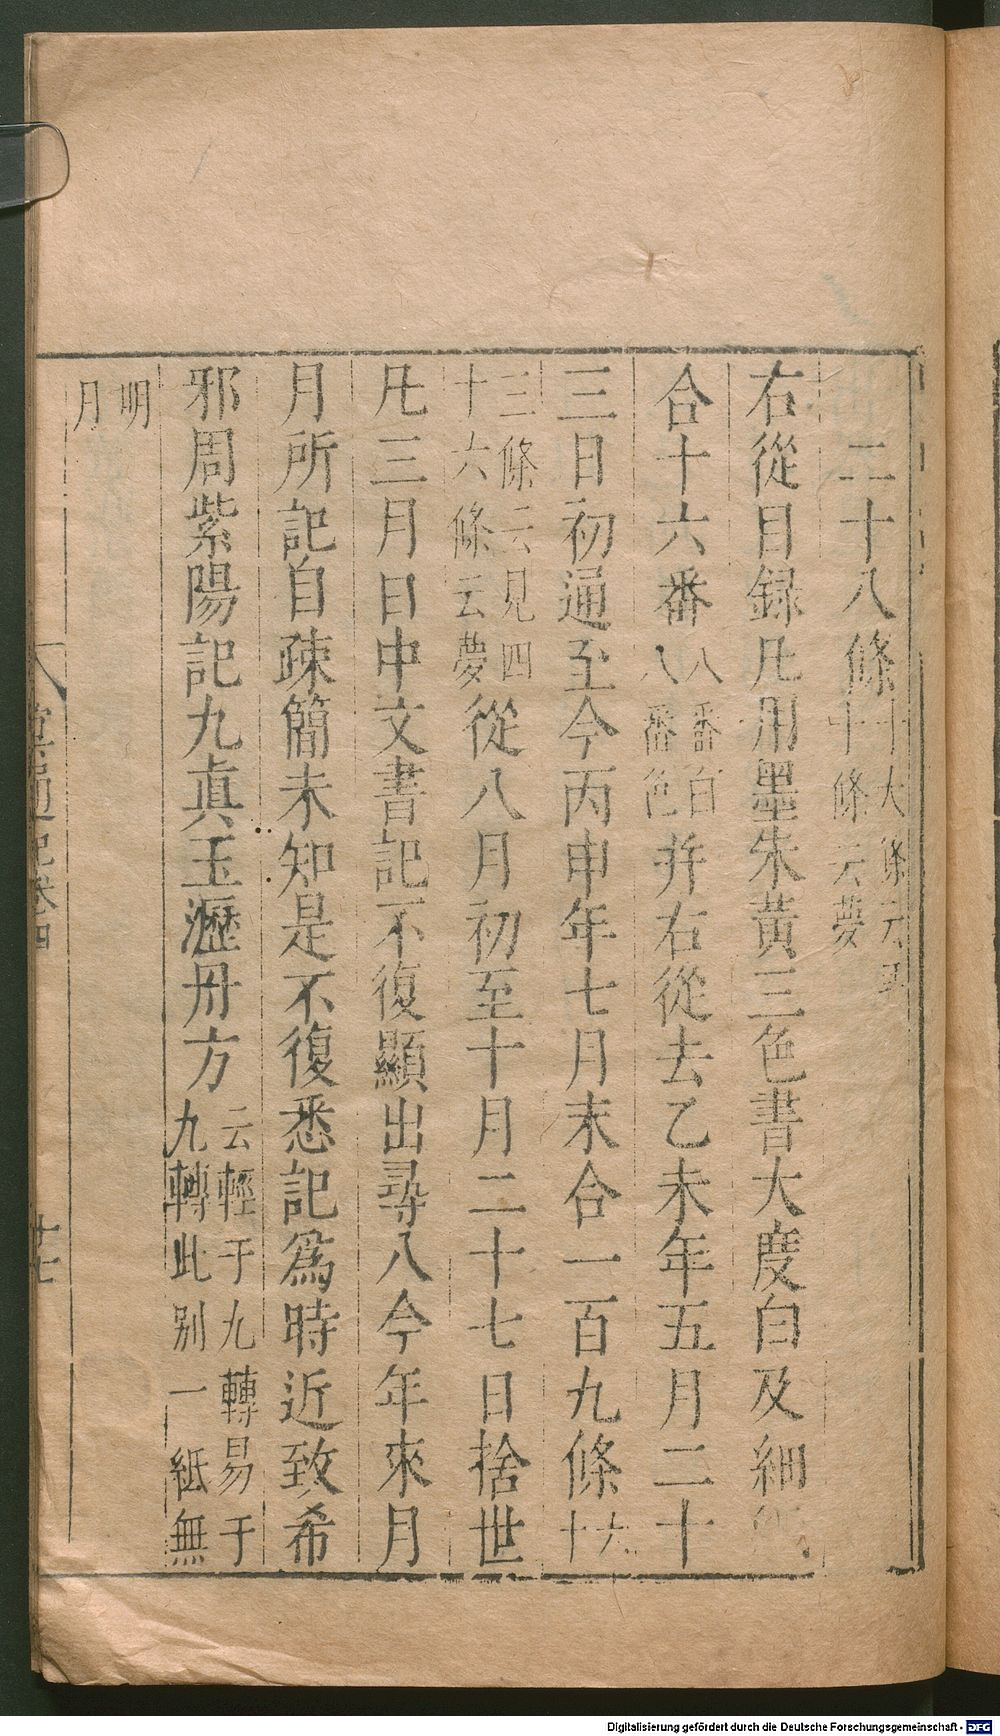 二十八條十大條云
十條云夢
右從目録凡用墨朱黃三色書大度白及細
合十六番八番白
八番色并右從去乙未年五月二十
三日初通至今丙申年七月末合一百九條六
十
三條云見四
十六條云夢從八月初至十月二十七日捨世
凡三月日中文書記不復顯出尋八今年來月
月所記自疎簡未知是不復悉記爲時近致希
邪周紫陽記九真玉瀝丹方云輕于九轉易于
九轉此别一紙無
明
月
冥通記卷四
廿七
Digitalisierung gefördert durch die Deutsche Forschungsgemeinschaft - DFG